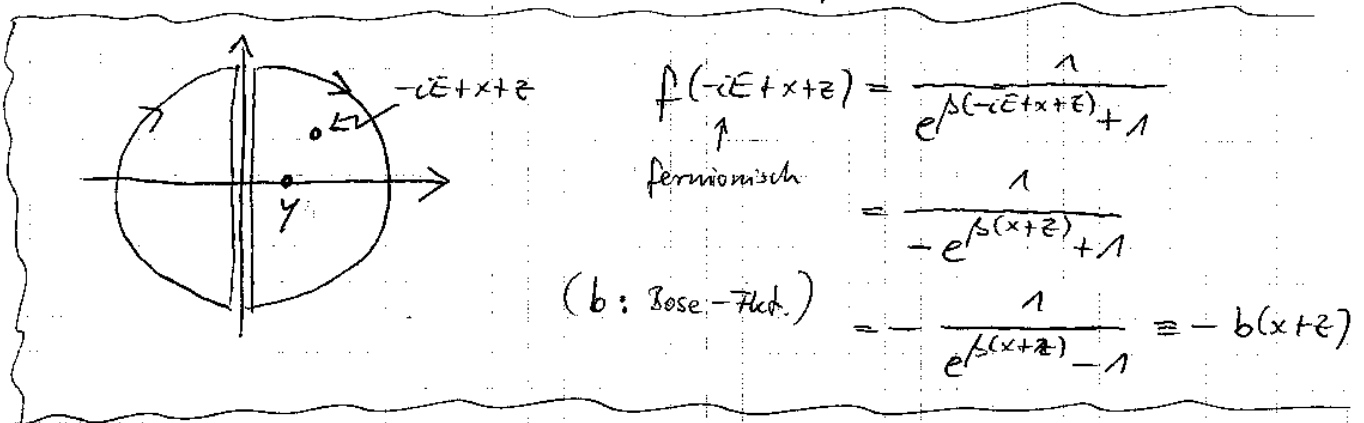 -iE+x+z
y
f(-iE+x+z) = 1 / (e^{β(-iE+x+z)} + 1)
↑
fermionisch
= 1 / (-e^{β(x+z)} + 1)
(b: Bose-Fkt.)
= - 1 / (e^{β(x+z)} - 1) ≡ - b(x+z)